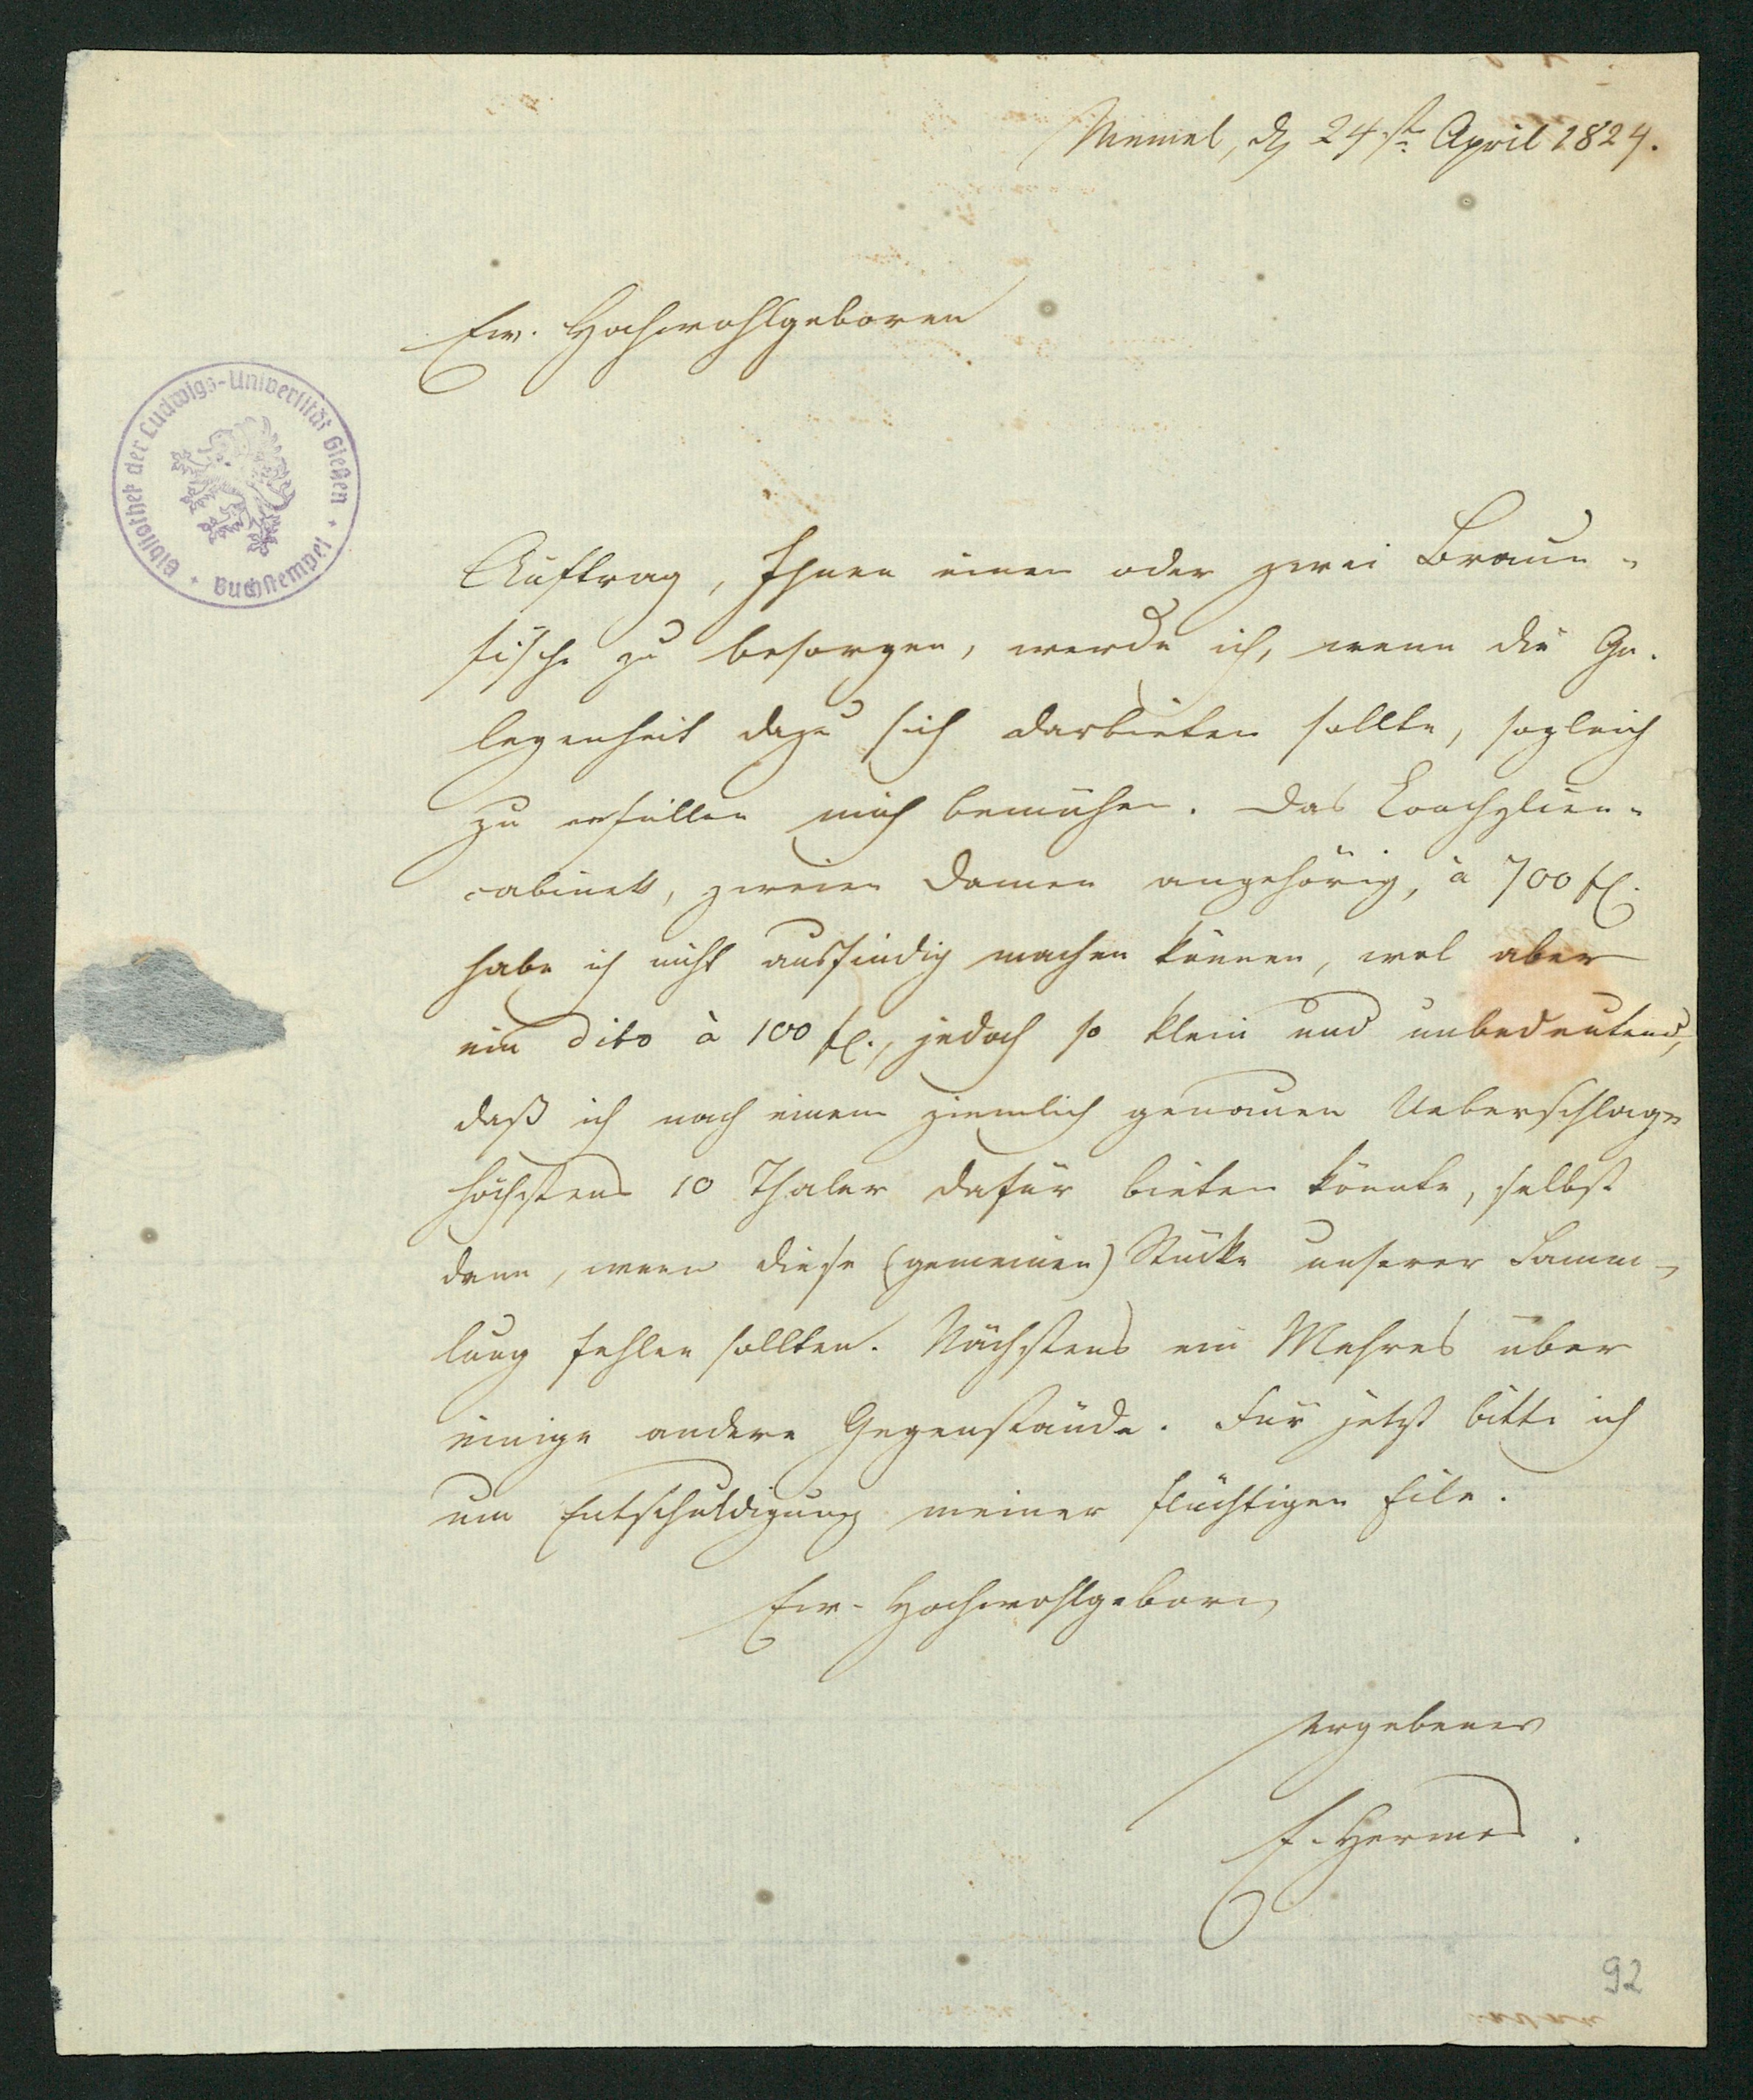 Memel, d 24st. April 1824.
Ew. Hochwohlgeboren
Bibliothek der Ludwigs-Universität Gießen
Buchstempel
Auftrag, Ihnen einen oder zwei Braun-
fische zu besorgen, werde ich, wenn die Ge-
legenheit dazu sich darbieten sollte, sogleich
zu erfüllen mich bemühen. Das Conchylien-
cabinet, zweien Damen angehörig, à 700 fl.
habe ich nicht ausfindig machen können, wol aber
ein dito à 100 fl., jedoch so klein und unbedeutend,
daß ich nach einem ziemlich genauen Ueberschlage
höchstens 10 Thaler dafür bieten könnte, selbst
dann, wenn diese (gemeinen) Stücke unserer Samm-
lung fehlen sollten. Nächstens ein Mehres über
einige andere Gegenstände. Für jetzt bitte ich
um Entschuldigung meiner flüchtigen Eile.
Ew. Hochwohlgeborn
ergebener
E. Hermes.
92